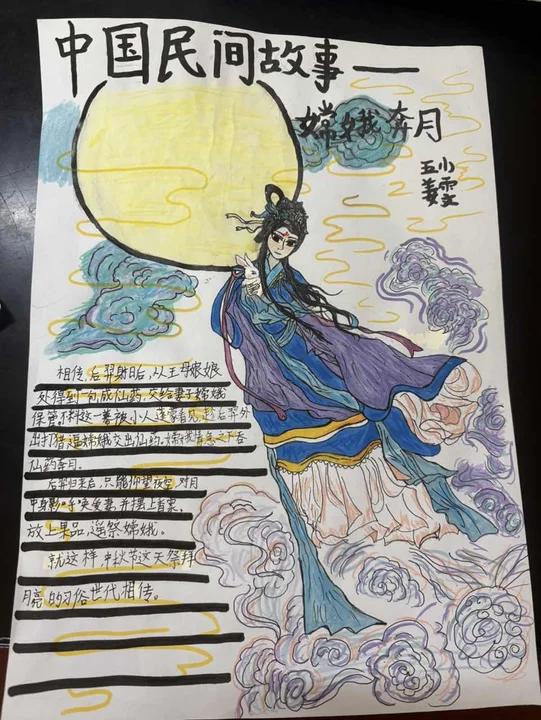 中国民间故事—
嫦娥奔月
五小
姜雯
相传，后羿射日后，从王母娘娘
处得到一包成仙药，交给妻子嫦娥
保管。不料这一幕被小人蓬蒙看见，趁后羿外
出打猎逼嫦娥交出仙药。嫦娥情急之下吞
仙药奔月。
后羿归来后，只能仰望夜空，对月
中身影
爱妻，并摆上香案，
放上果品，遥祭嫦娥。
就这样，中秋节这天祭拜
月亮的习俗世代相传。